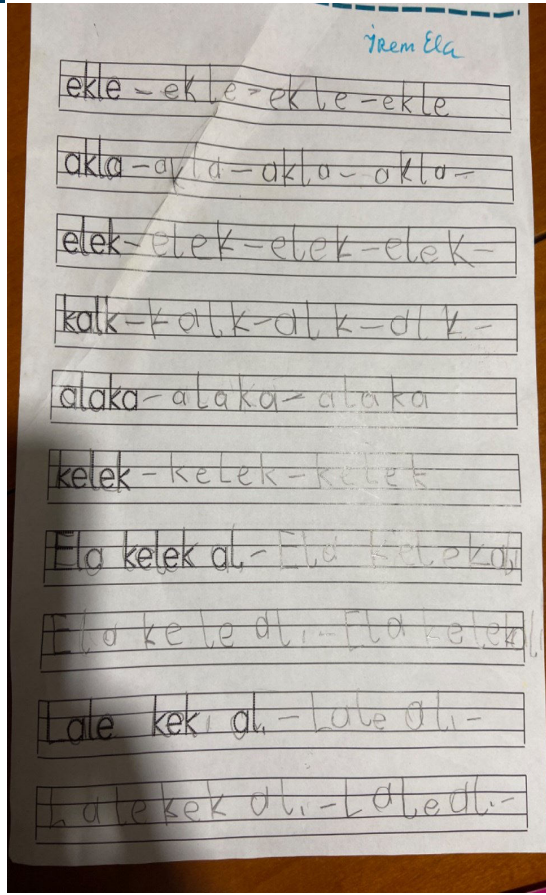 İrem Ela
ekle - ekle - ekle - ekle
akla - akla - akla - akla -
elek - elek - elek - elek -
kalk - kalk - alk - alk -
alaka - alaka - alaka
kelek - kelek - kelek
Ela kelek al. - Ela kelek al.
Ela kele al. - Ela kelek
Lale kek al. - Lale al. -
Lale kek al. - Lale al. -